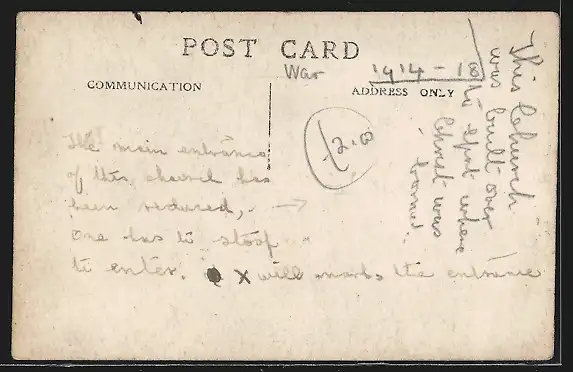 POST CARD
War 1914-18
COMMUNICATION
ADDRESS ONLY
The main entrance
of this church has
been reduced, →
one has to stoop
to enter. X will marks the entrance
This Church
was built over
to spot where
Christ was
borned.